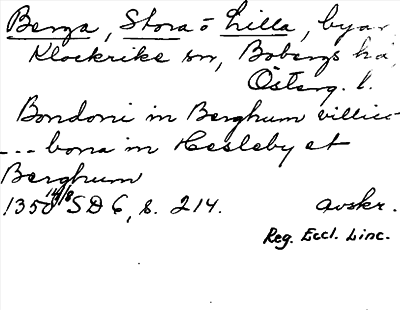 Berga, Stora o Lilla, byar,
Klockrike sn, Bobergs hd,
Österg. l.
Bondoni in Berghum villico
... bona in Hesleby et
Berghum
1350 14/8 SD 6, s. 214. avskr.
Reg. Eccl. Linc.